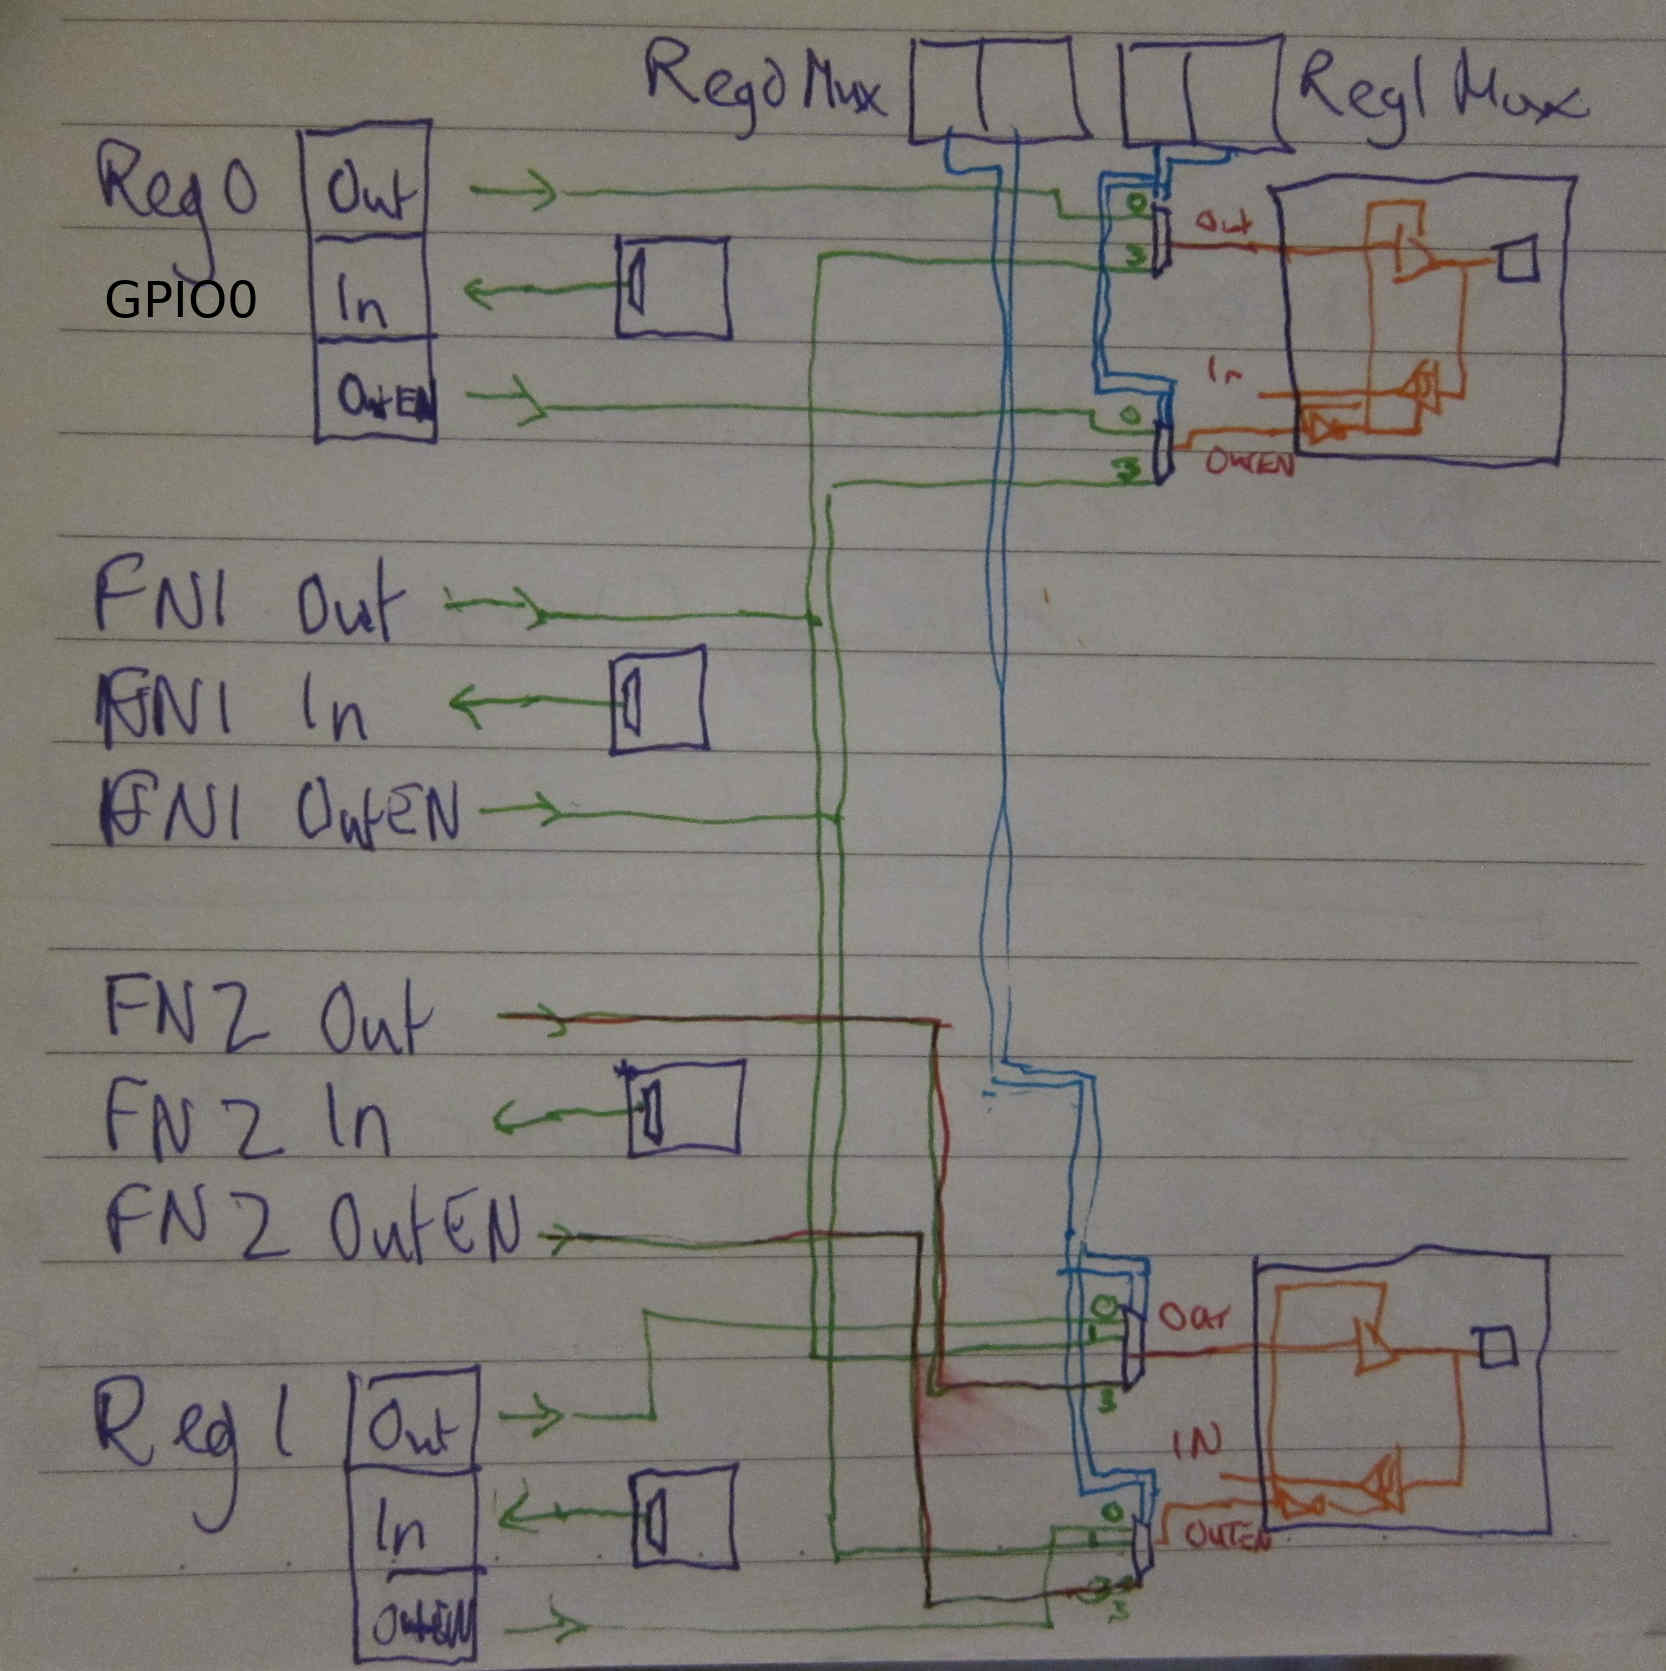 Reg0 Mux
Reg1 Mux
Reg0
Out
0
Out
3
GPIO0
In
In
OutEN
0
3
OutEN
FN1 Out
FN1 In
FN1 OutEN
FN2 Out
FN2 In
FN2 OutEN
0
Out
1
3
Reg1
Out
IN
In
0
1
OUTEN
3
OutEN